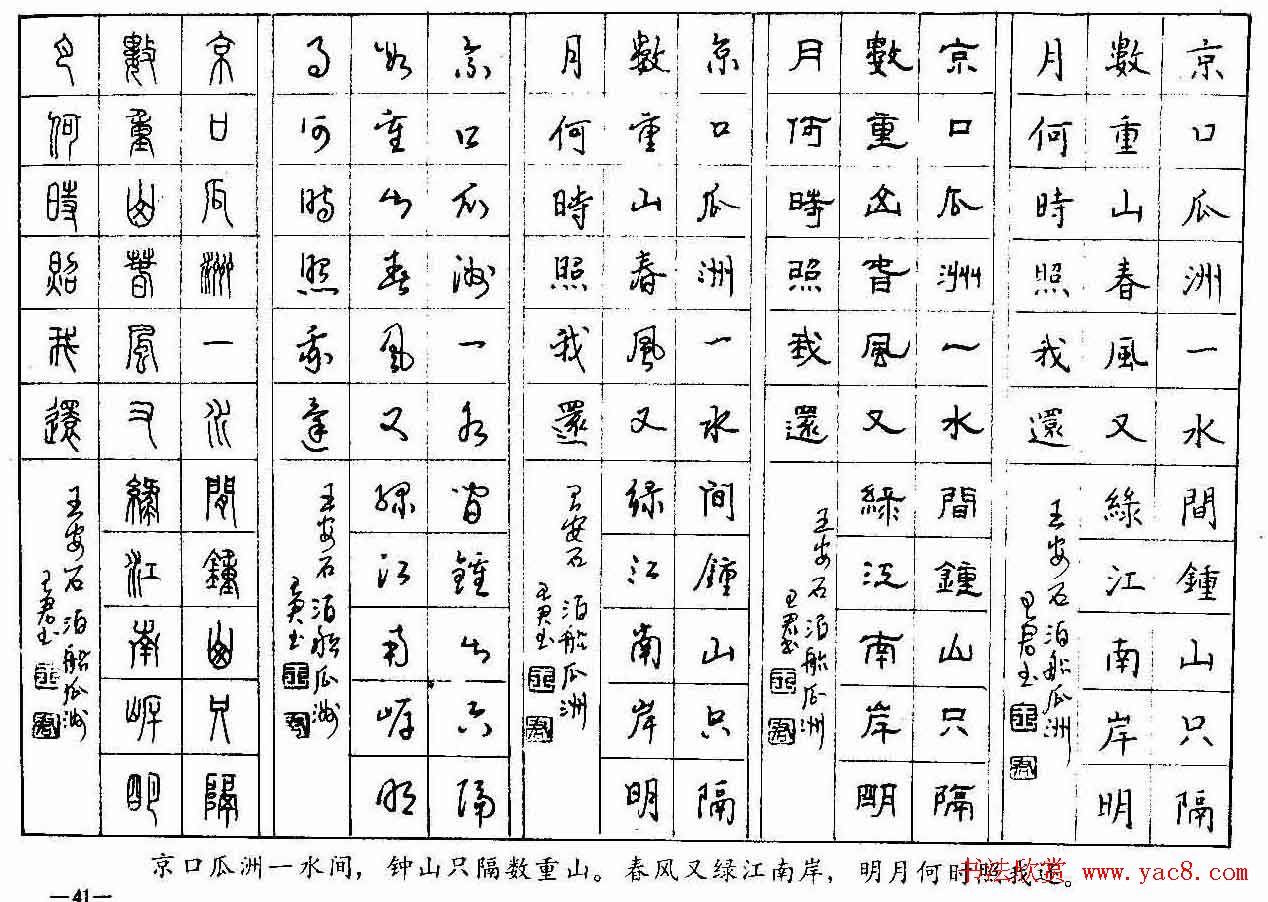 京口瓜洲一水間鍾山只隔
數重山春風又綠江南岸明
月何時照我還
王安石泊船瓜洲
王君书
京口瓜洲一水間鍾山只隔
數重山春風又綠江南岸明
月何時照我還
王安石泊船瓜洲
王君书
京口瓜洲一水間鍾山只隔
數重山春風又绿江南岸明
月何時照我還
王安石泊船瓜洲
王君书
京口瓜洲一水間鍾山只隔
數重山春風又綠江南岸明
月何時照我還
王安石泊船瓜洲
王君书
京口瓜洲一水間鍾山只隔
數重山春風又綠江南岸明
月何時照我還
王安石泊船瓜洲
王君书
京口瓜洲一水间，钟山只隔数重山。春风又绿江南岸，明月何时照我还。
书法欣赏 www.yac8.com
—41—